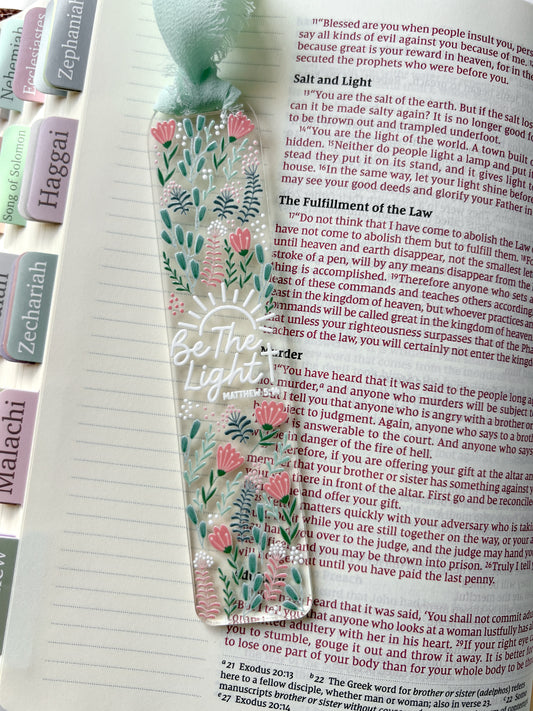 Nehemiah
Ecclesiastes
Zephaniah
Song of Solomon
Haggai
Zechariah
Malachi
Be The
Light
MATTHEW
11“Blessed are you when people insult you,
say all kinds of evil against you because of me.
because great is your reward in heaven, for in the
secuted the prophets who were before you.
Salt and Light
13“You are the salt of the earth. But if the salt
can it be made salty again? It is no longer good
to be thrown out and trampled underfoot.
14“You are the light of the world. A town built
hidden. 15Neither do people light a lamp and put
stead they put it on its stand, and it gives light
house. 16In the same way, let your light shine before
may see your good deeds and glorify your Father in
The Fulfillment of the Law
17“Do not think that I have come to abolish the Law
have not come to abolish them but to fulfill them.
until heaven and earth disappear, not the smallest
stroke of a pen, will by any means disappear from the
thing is accomplished. 19Therefore anyone who sets
least of these commands and teaches others
least in the kingdom of heaven, but whoever practices
commands will be called great in the kingdom of heaven
that unless your righteousness surpasses that of the
teachers of the law, you will certainly not enter the
Murder
“You have heard that it was said to the people long
murder,a and anyone who murders will be subject
I tell you that anyone who is angry with a brother
subject to judgment. Again, anyone who says to a
is answerable to the court. And anyone who says
in danger of the fire of hell.
if you are offering your gift at the altar and
that your brother or sister has something against
there in front of the altar. First go and be reconciled
and offer your gift.
matters quickly with your adversary who is
while you are still together on the way, or your
hand you over to the judge, and the judge may hand
and you may be thrown into prison. 26Truly I tell
out until you have paid the last penny.
heard that it was said, ‘You shall not commit
you that anyone who looks at a woman lustfully has
committed adultery with her in his heart. 29If your right eye
you to stumble, gouge it out and throw it away. It is better
to lose one part of your body than for your whole body to be
a21 Exodus 20:13 b22 The Greek word for brother or sister (adelphos) refers
here to a fellow disciple, whether man or woman; also in verse 23. c22 Some
manuscripts brother or sister without
e27 Exodus 20:14